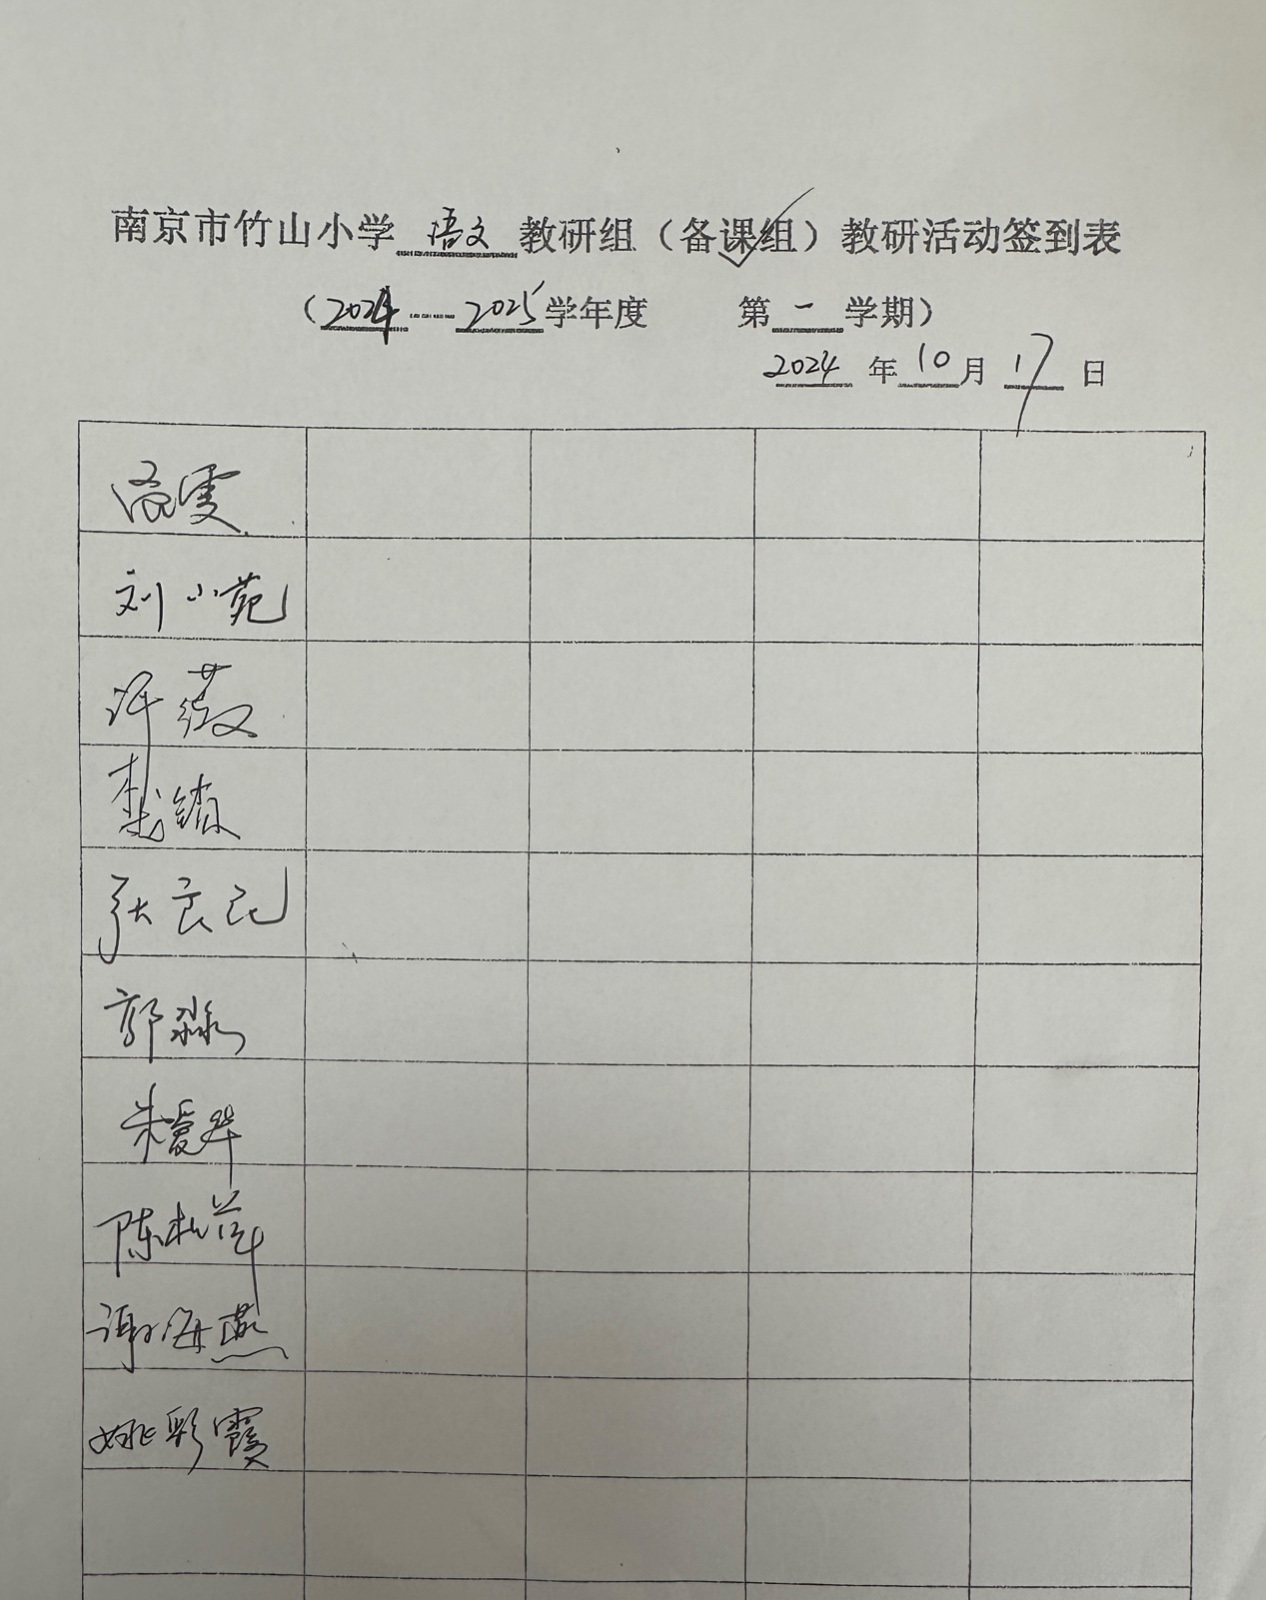 南京市竹山小学 语文 教研组（备课组）教研活动签到表
（2024----2025学年度 第一学期）
2024 年 10 月 17 日
雯
刘小苑
许薇
张良记
郭淼
朱爱华
陈松萍
谢海燕
姚彩霞